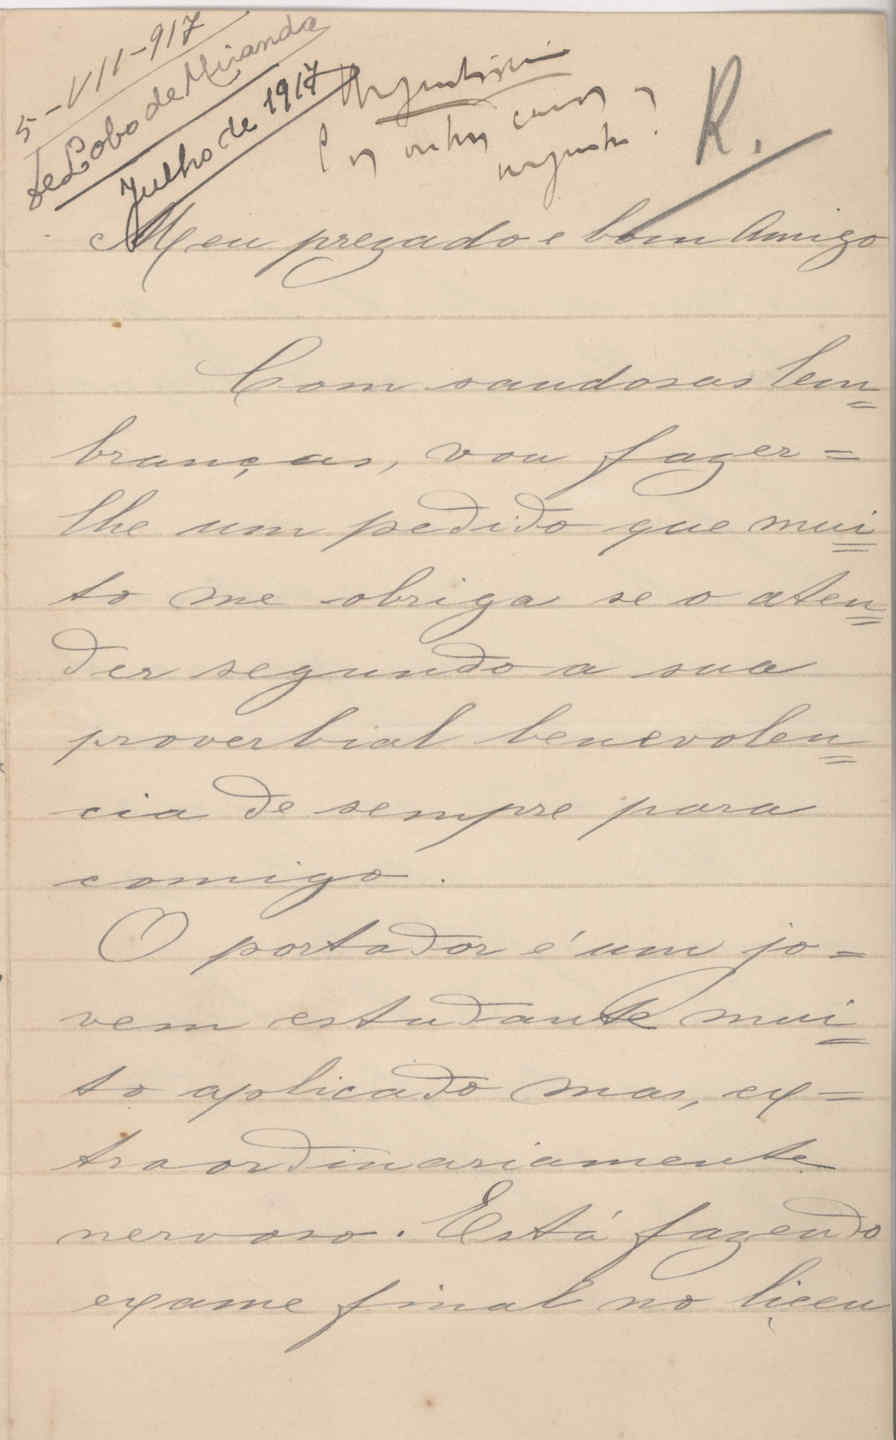 5-VII-917
de Lobo de Miranda
Julho de 1917
Urgentissimo
R.
Meu prezado e bom Amigo
Com saudosas lem=
branças, vou fazer=
lhe um pedido que mui=
to me obriga se o aten=
der segundo a sua
proverbial benevolen=
cia de sempre para
comigo.
O portador é um jo=
vem estudante mui=
to aplicado mas, ex=
traordinariamente
nervoso. Está fazendo
exame final no liceu